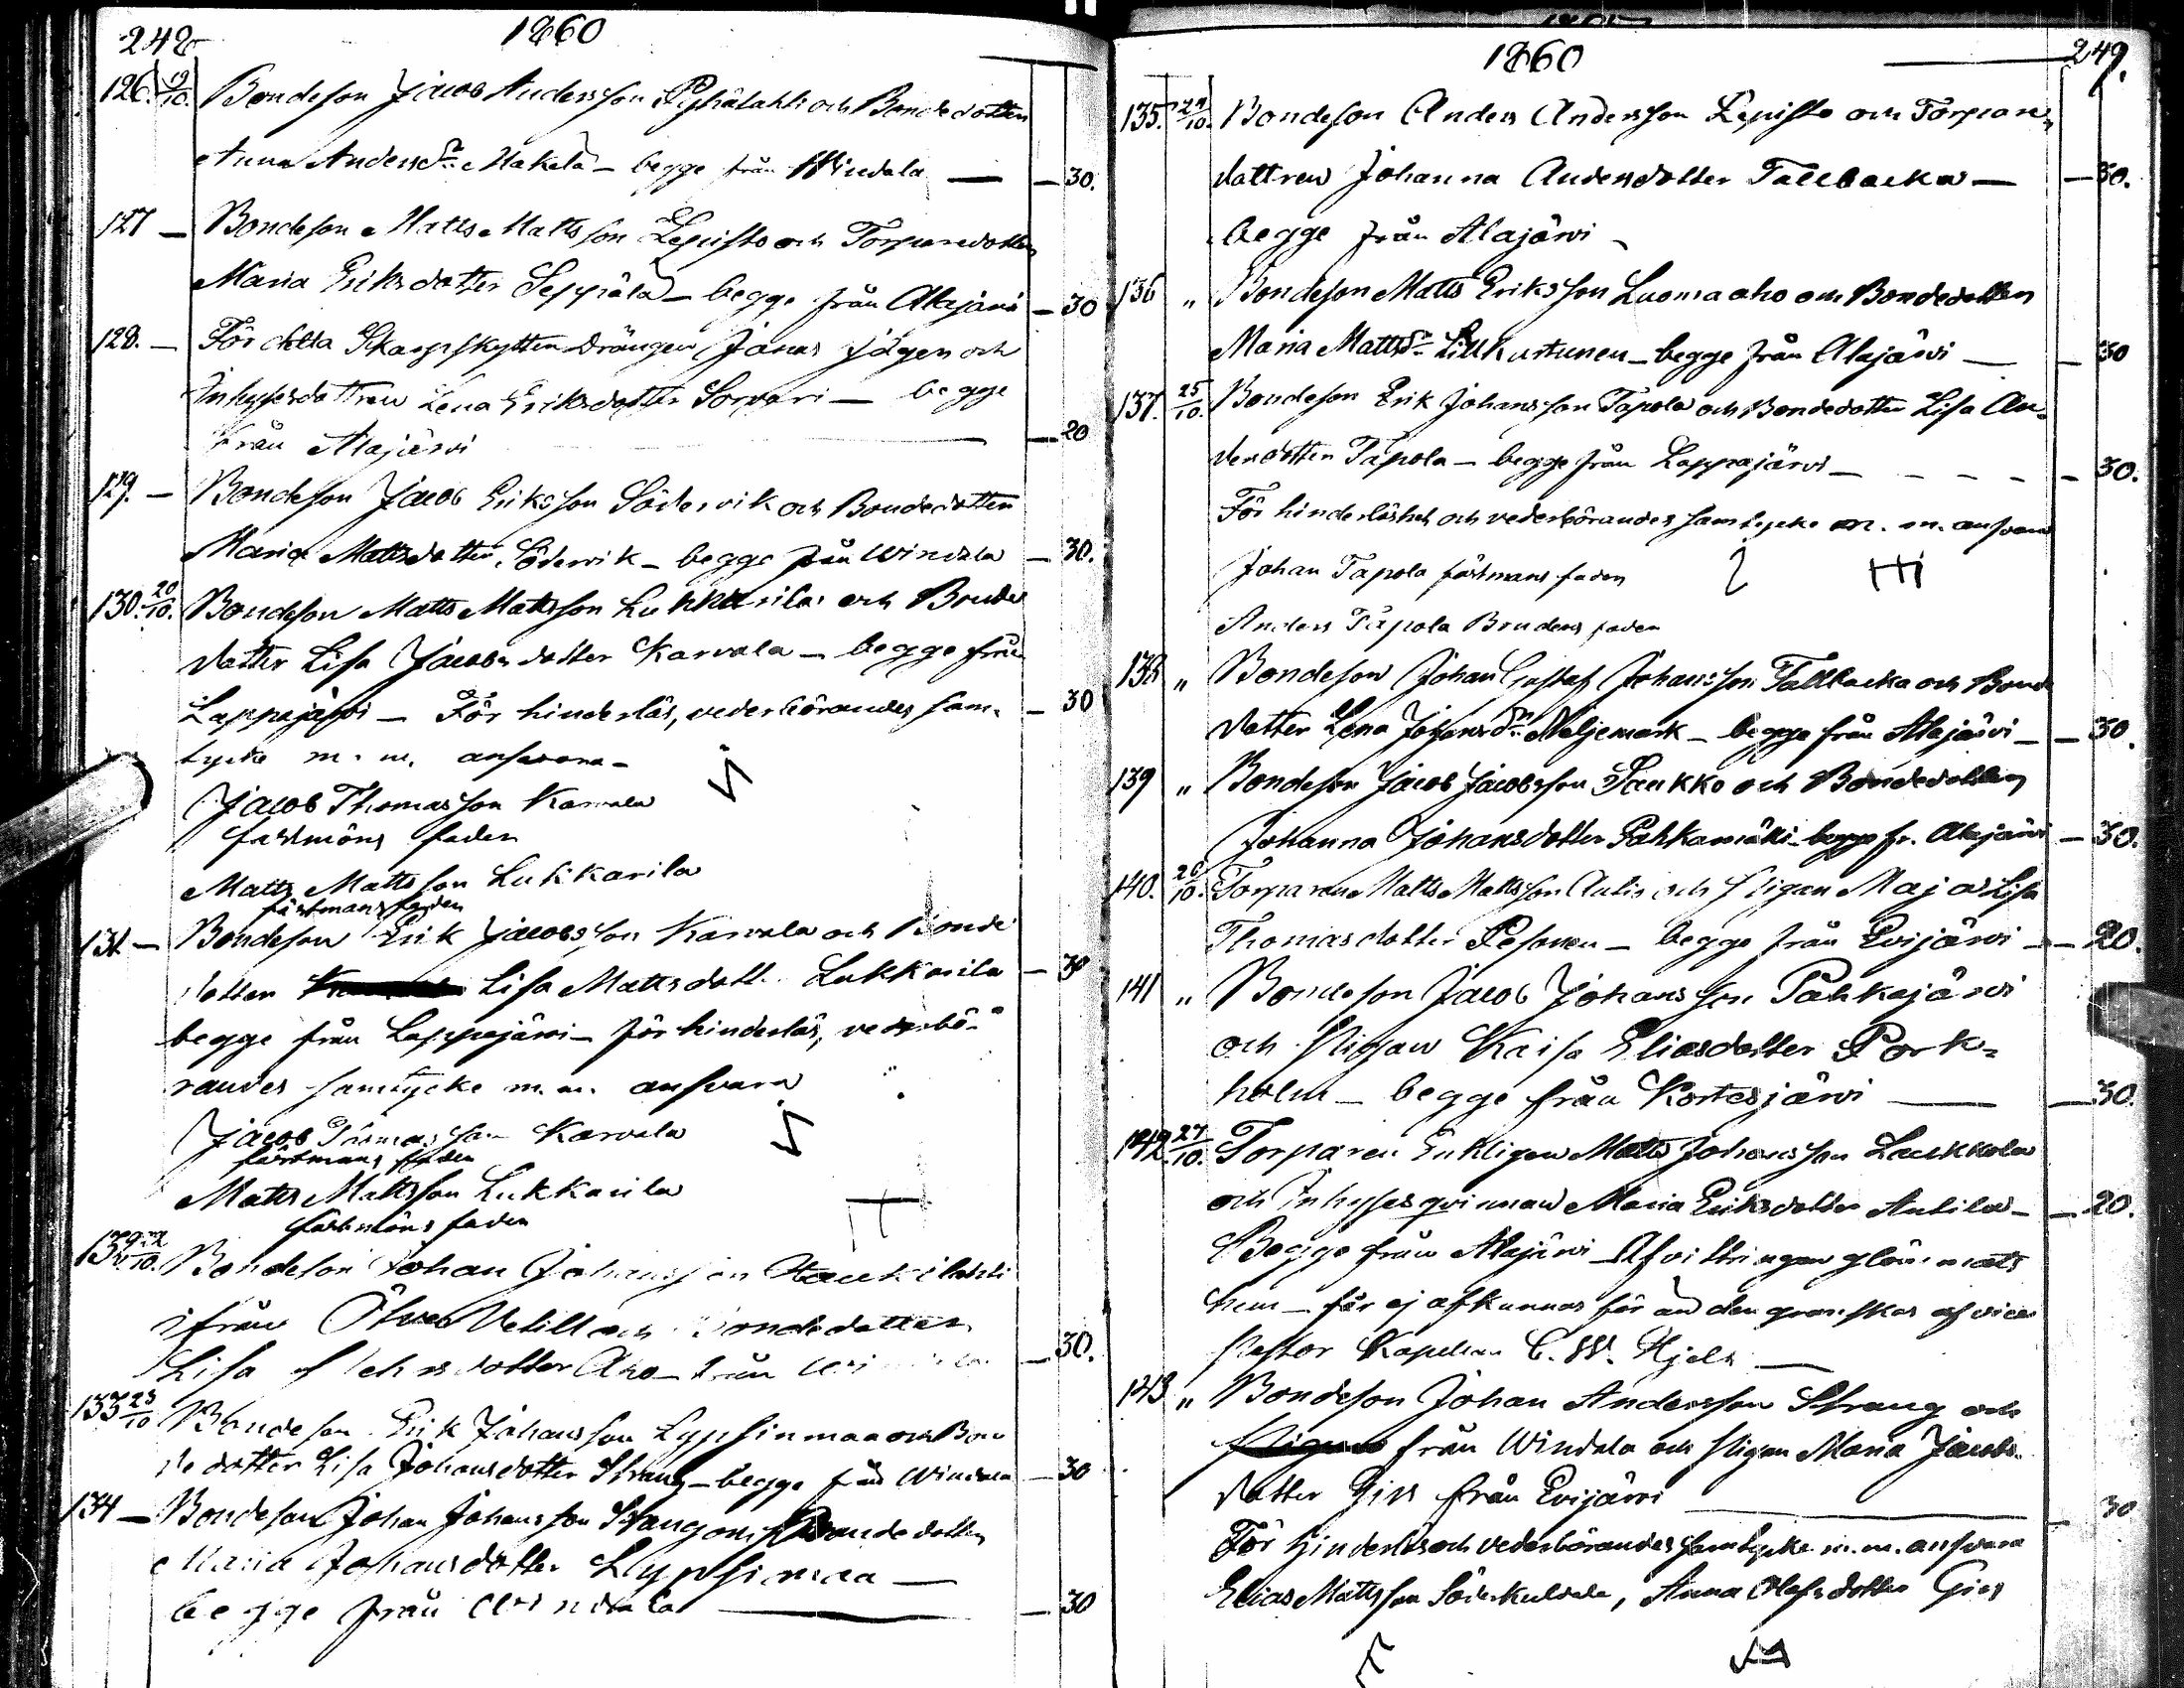 248
1860
126. 19/10. Bondeson Jacob Andersson Pyhälahti och Bondedottren
Anna Andersdr Mäkelä – begge från Windala — — 30.
127 – Bondeson Matts Mattsson Lepistö och Torparedottren
Maria Eriksdotter Seppälä – begge från Alajärvi – 30
128. – För detta Skarpskytten Drängen Jonas Jägen och
Inhysesdottren Lena Eriksdotter Sorvari – begge
från Alajärvi — 20
129. – Bondeson Jacob Eriksson Södervik och Bondedottren
Maria Mattsdotter Södervik – begge från Windala – 30.
130. 20/10. Bondeson Matts Mattsson Lukkarila och Bonde
dotter Lisa Jacobsdotter Karvala – begge från
Lappajärvi – För hinderlös, vederbörandes sam- – 30
tycke m. m. ansvara –
Jacob Thomasson Karvala
fästmöns fader
Matts Mattsson Lukkarila
fästmans fader
131 – Bondeson Erik Jacobsson Karvala och Bonde
dotter Lisa Mattsdott. Lukkarila – 30
begge från Lappajärvi – för hinderlös, vederbö-
randes samtycke m. m. ansvara
Jacob Thomasson Karvala
fästmans fader
Matts Mattsson Lukkarila
fästmöns fader
132. 22/10. Bondeson Johan Johansson
ifrån Öfver Vetill och Bondedotter
Lisa dotter Aho – från — 30.
133 23/10 Bondeson Erik Johansson Lypsinmaa och Bon
dedotter Lisa Johansdotter Strang – begge från Windala – 30
134 – Bondeson Johan Johansson Strang och Bondedotter
Maria Johansdotter Lypsinmaa —
begge från Windala — 30
1860
249.
135. 24/10. Bondeson Anders Andersson Lepistö och Torpare-
dottren Johanna Andersdotter Tallbacka — — 30.
begge från Alajärvi –
136 " Bondeson Matts Eriksson Luomaaho och Bondedotter
Maria Mattsdr Lill Kurtunen – begge från Alajärvi — – 30
137. 25/10. Bondeson Erik Johansson Tapola och Bondedotter Lisa An-
dersdotter Tapola – begge från Lappajärvi – – – – – 30.
För hinderlöshet och vederbörandes samtycke m. m. ansvara
Johan Tapola fästmans fader
Anders Tapola Brudens fader
138 " Bondeson Johan Gustaf Johansson Tallbacka och Bonde
dotter Lena Johansdr Neljemark – begge från Alajärvi – – 30.
139 " Bondeson Jacob Jacobsson Paukko och Bondedotter
Johanna Johansdotter Pahkamäki – begge fr. Alajärvi – 30.
140. 26/10. Torparen Matts Mattsson Aulis och pigan Maja Lisa
Thomasdotter Pesonen – begge från Evijärvi – – 20.
141 " Bondeson Jacob Johansson Pahkajärvi
och Pigan Kaisa Eliasdotter Pork-
holm – begge från Kortesjärvi — — 30.
142. 27/10. Torparen Enklingen Matts Johansson Laukkola
och Inhysesqvinnan Maria Eriksdotter Antila – – 20.
Begge från Alajärvi – Afvittringen glömmats
hem – får ej afkunnas för än den granskas af vice
Pastor Kapellan C. W. Hjelt —
143. " Bondeson Johan Andersson Strang och
från Windala och Pigan Maria Jacobs-
dotter Gers från Evijärvi — 30
För Hinderlös och vederbörandes samtycke m. m. ansvara
Elias Mattsson Söderkultala, Anna Olofsdotter Gers